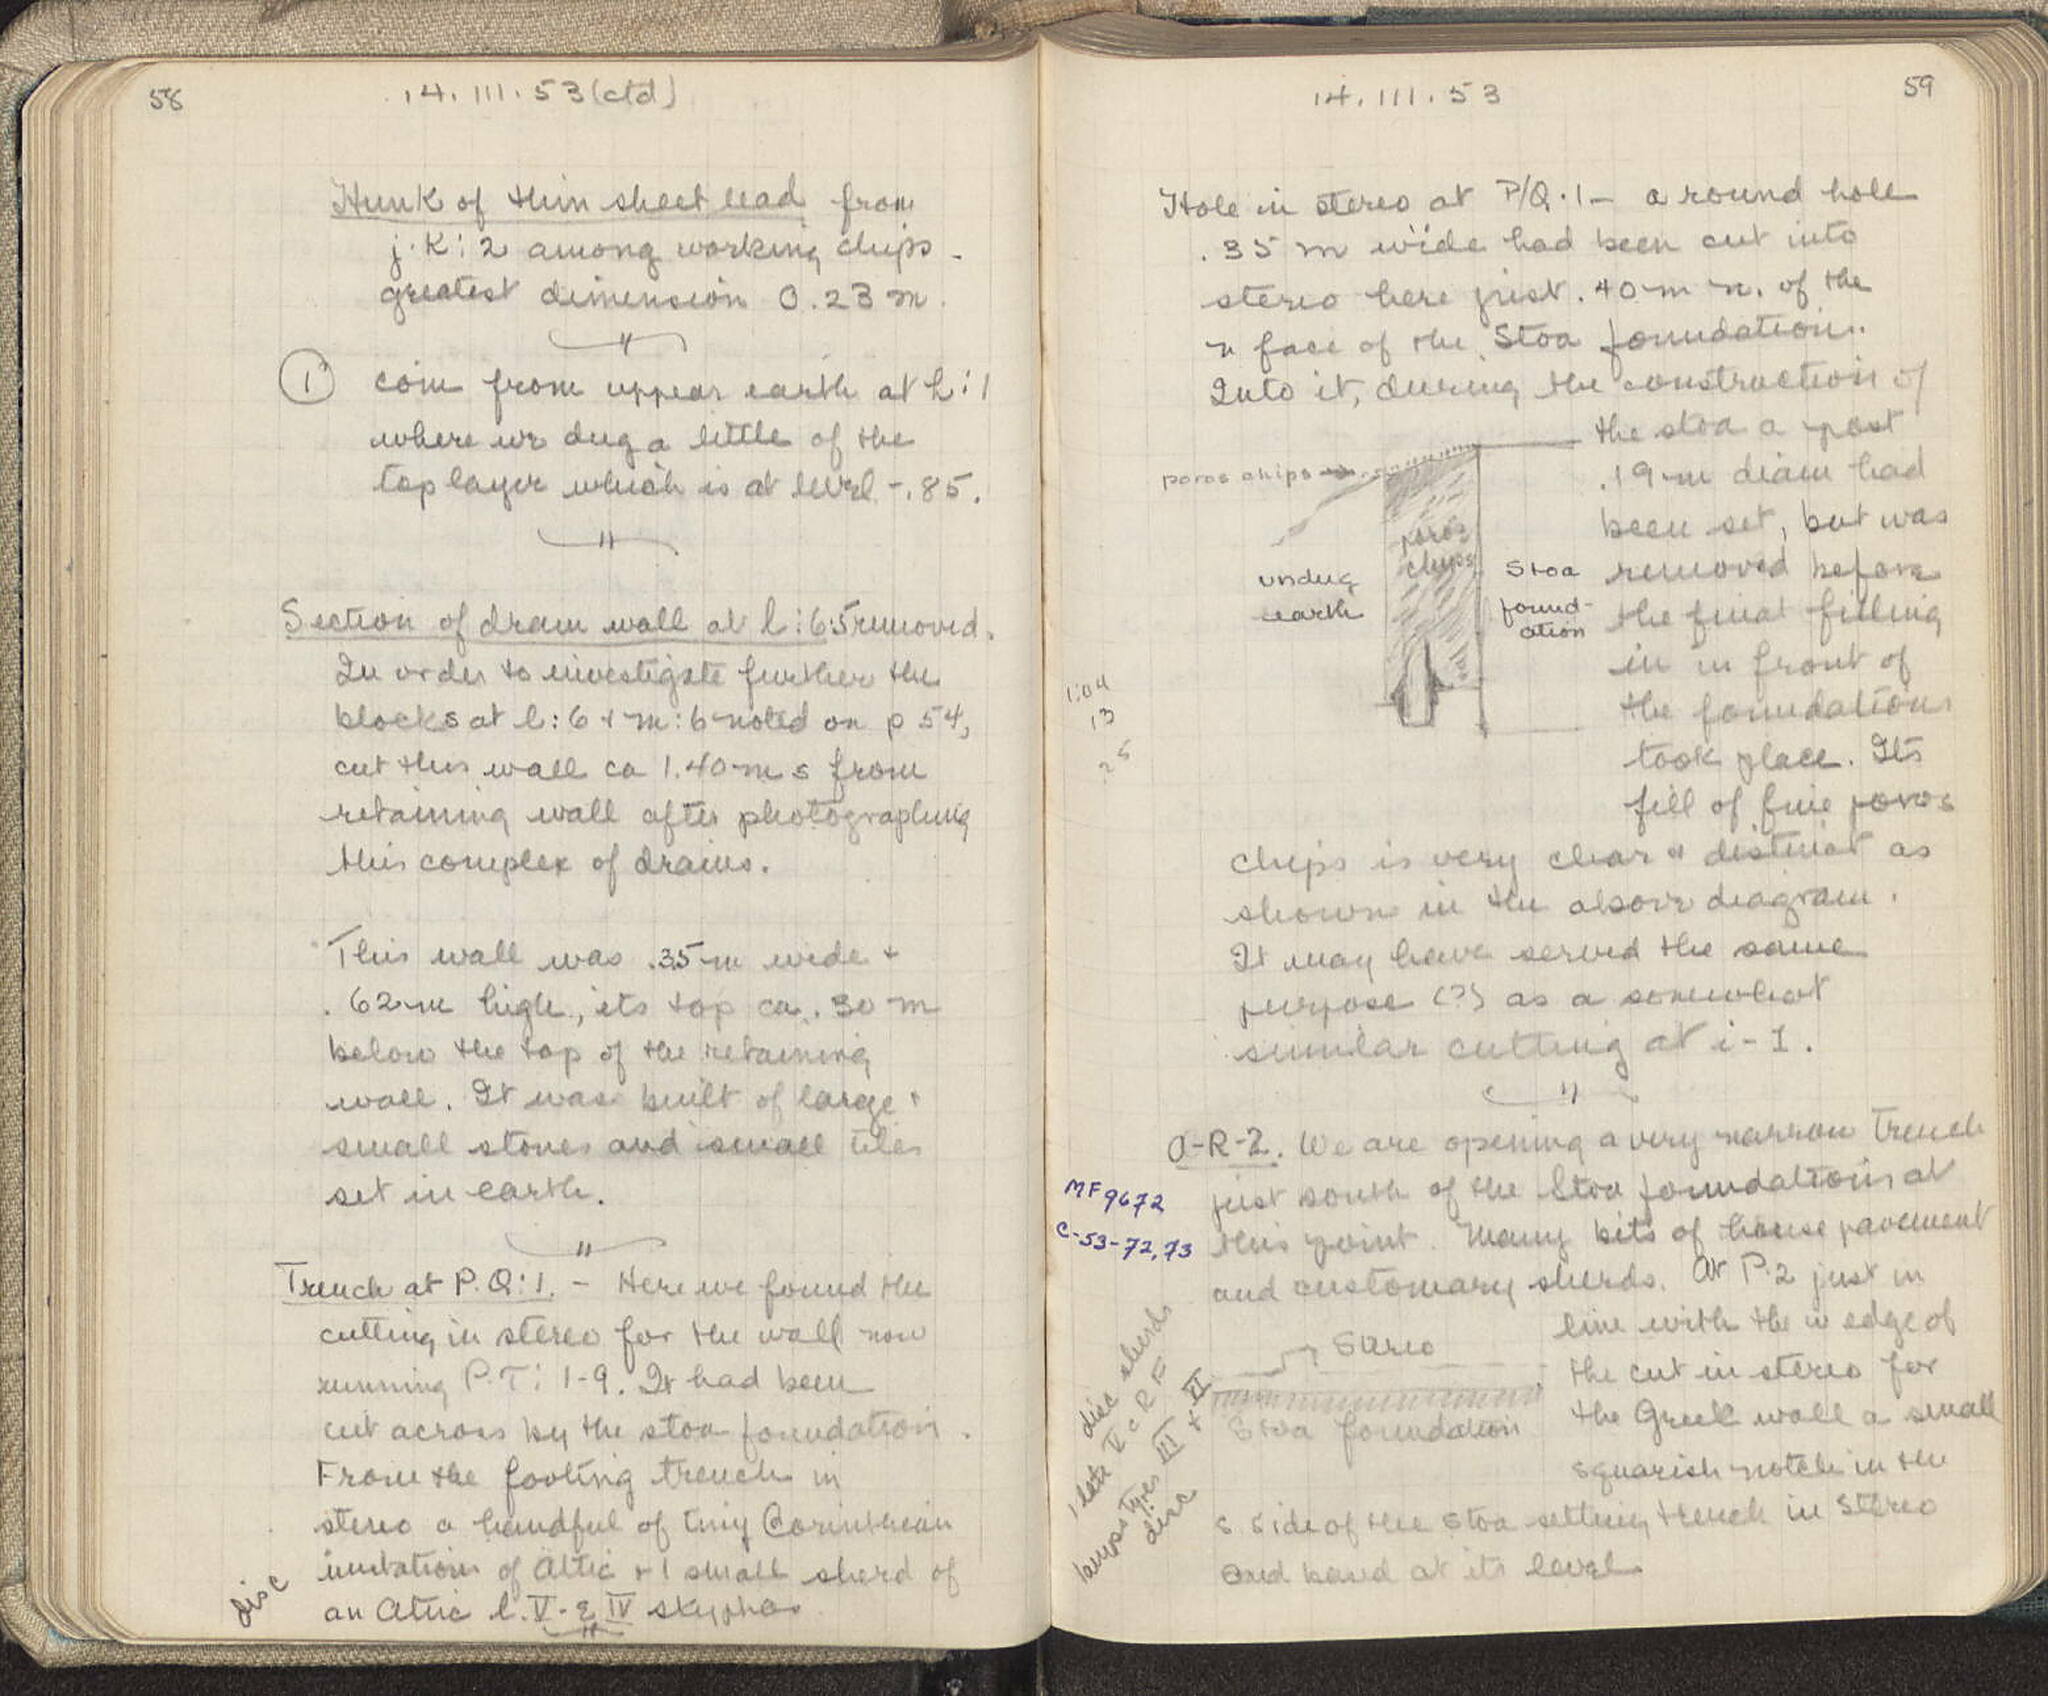 58
14.III.53 (ctd)
Hunk of thin sheet lead from
j.K:2 among working chips -
greatest dimension 0.23 m.
"
1 coin from upper earth at L:1
where we dug a little of the
top layer which is at level -.85.
"
Section of drain wall at l:6.5 removed.
In order to investigate further the
blocks at l:6 + m:6 noted on p 54,
cut this wall ca 1.40 m s from
retaining wall after photographing
this complex of drains.
This wall was .35 m wide +
.62 m high, its top ca. .30 m
below the top of the retaining
wall. It was built of large +
small stones and small tiles
set in earth.
"
Trench at P.Q:1. - Here we found the
cutting in stereo for the wall now
running P.T: 1-9. It had been
cut across by the stoa foundation.
From the footing trench in
stereo a handful of tiny Corinthian
imitations of Attic + 1 small sherd of
an Attic l. V - e IV skyphos
"
disc
59
14.III.53
Hole in stereo at P/Q.1 - a round hole
.35 m wide had been cut into
stereo here just .40 m n. of the
n face of the Stoa foundation.
Into it, during the construction of
the stoa a post
.19 m diam had
been set, but was
removed before
the final filling
in in front of
the foundations
took place. Its
fill of fine poros
chips is very clear & distinct as
shown in the above diagram.
It may have served the same
purpose (?) as a somewhat
similar cutting at i-I.
"
poros chips
poros
chips
undug
earth
Stoa
found-
ation
1:04
13
25
O-R-2. We are opening a very narrow trench
just south of the Stoa foundations at
this point. Many bits of house pavement
and customary sherds. At P.2 just in
line with the w edge of
the cut in stereo for
the Greek wall a small
squarish notch in the
s side of the stoa setting trench in stereo
and hand at its level
Stereo
Stoa foundation
MF 9672
C-53-72,73
disc sherds
1 late V C R F
lamps types III + VI
disc